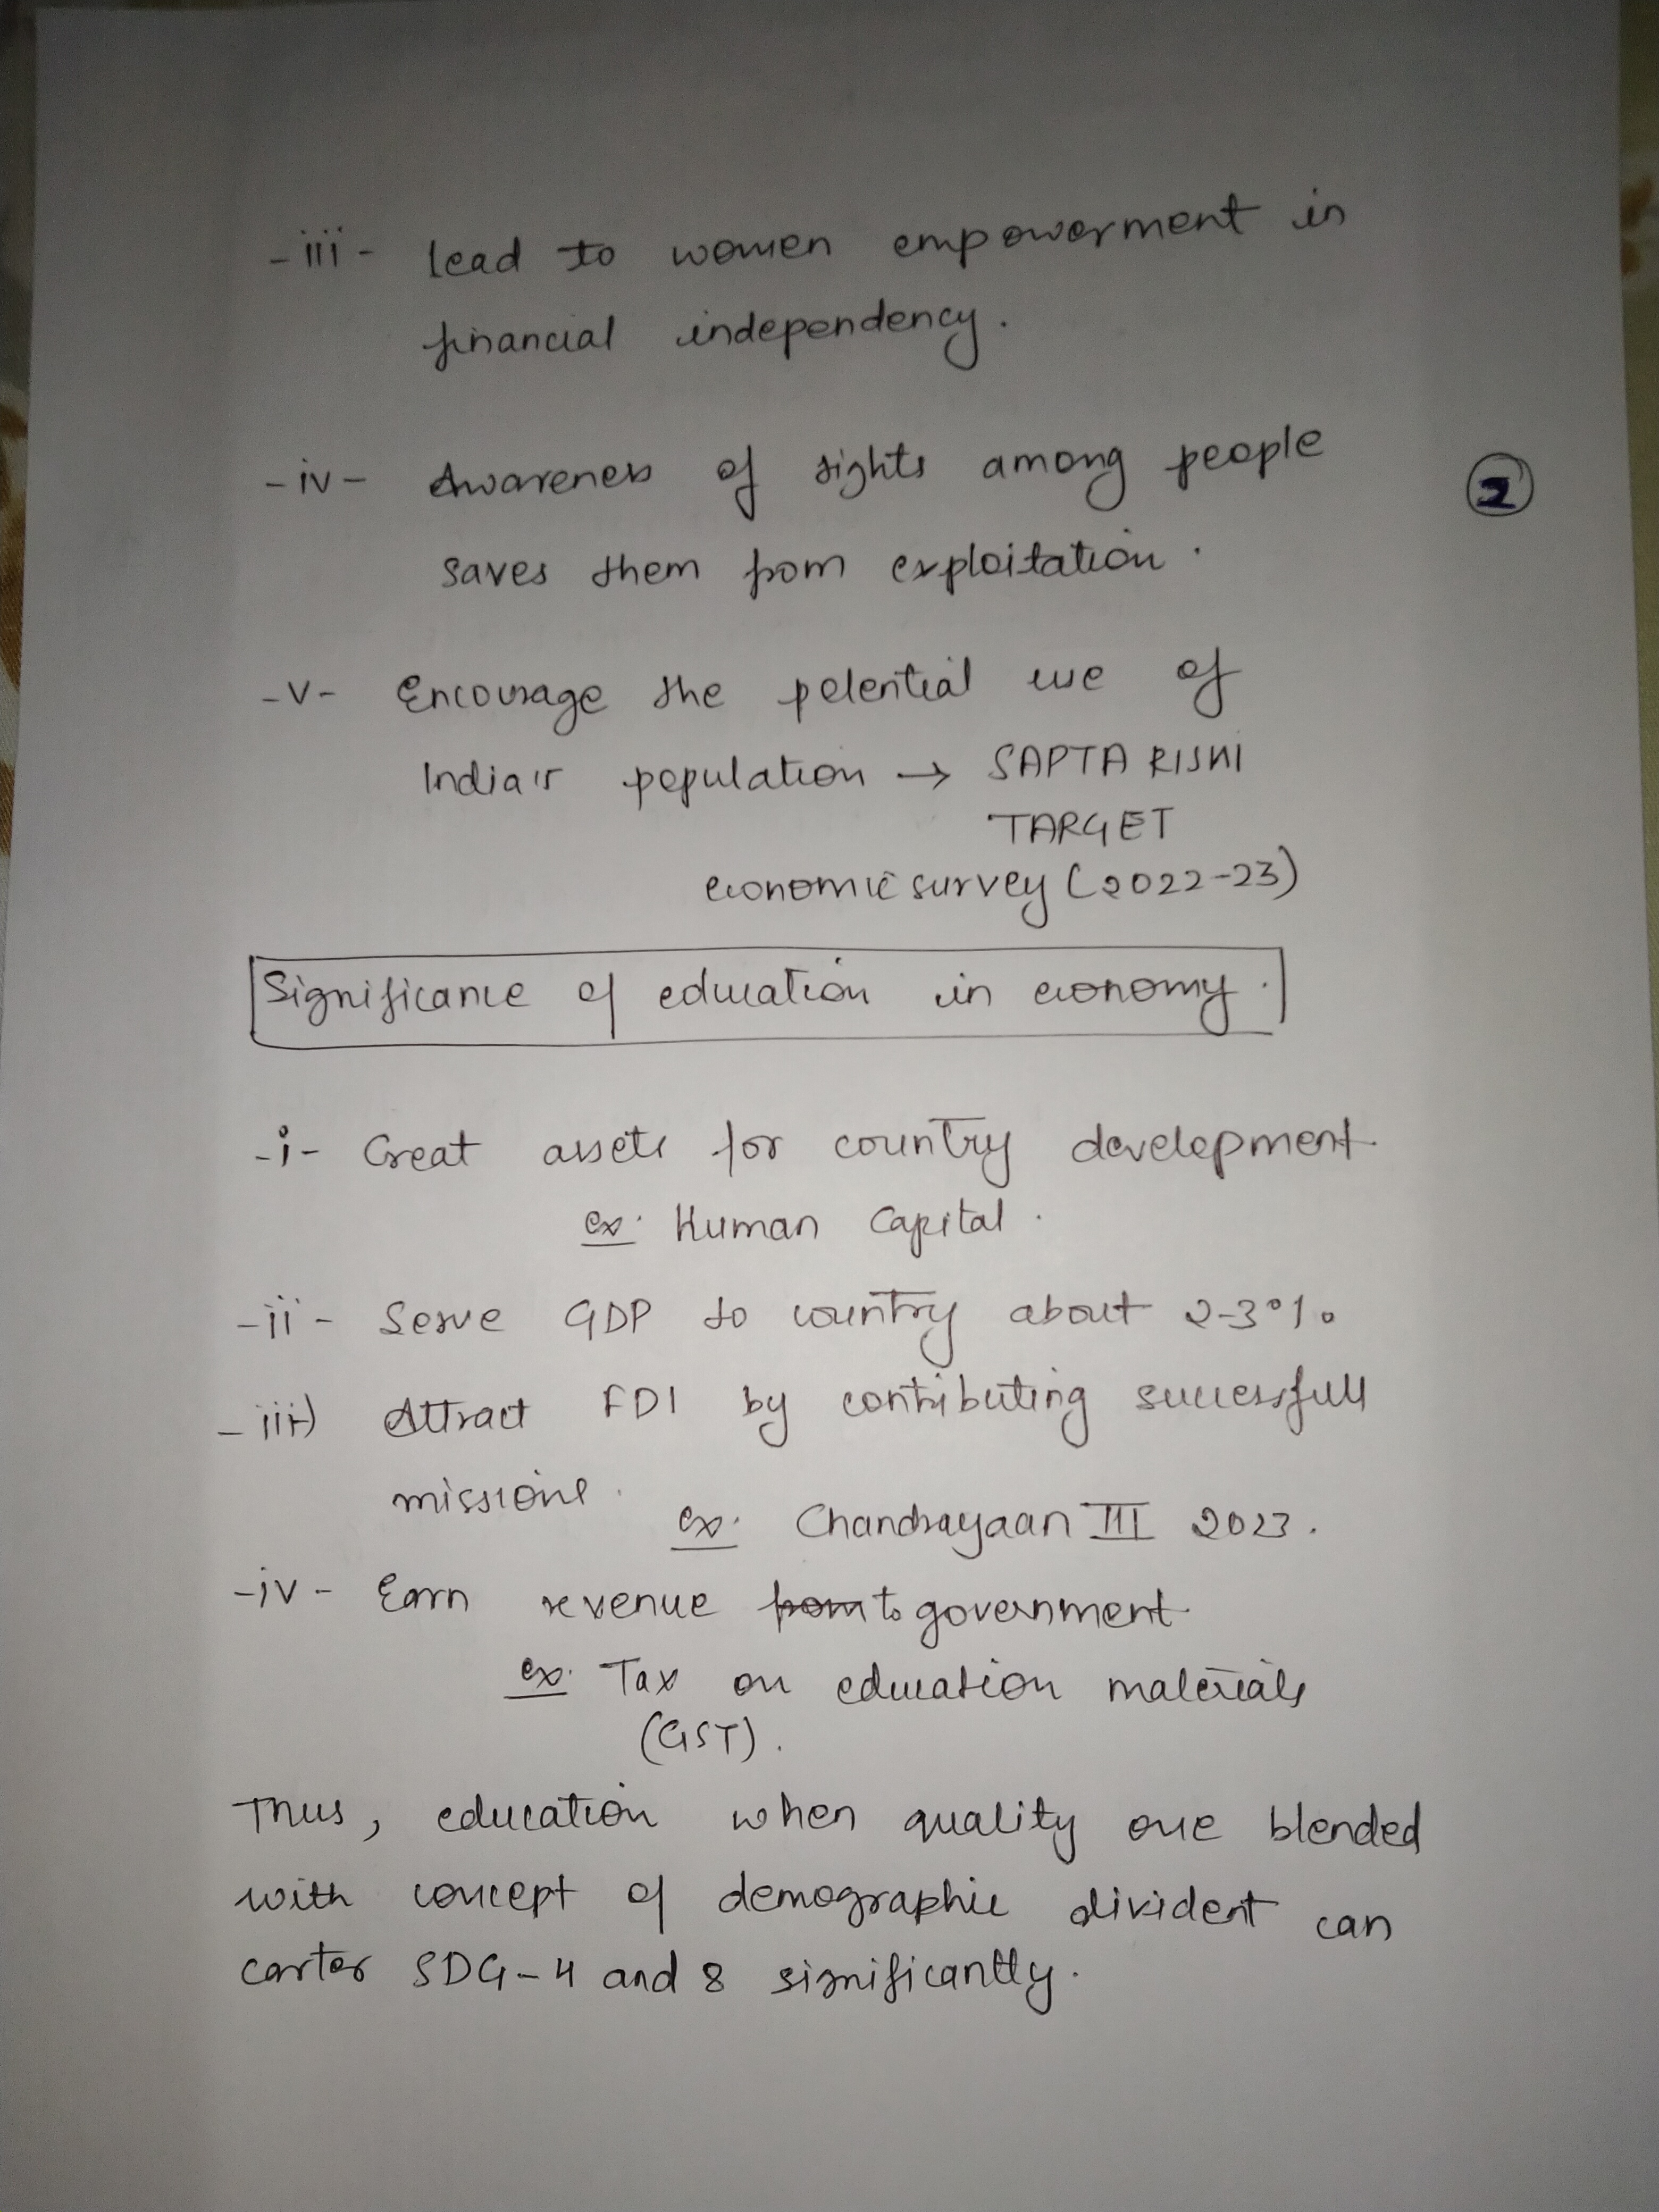 -iii- lead to women empowerment in
financial independency.
-iv- Awareness of rights among people
2
saves them from exploitation.
-v- Encourage the potential use of
India's population → SAPTA RISHI
TARGET
economic survey (2022-23)
Significance of education in economy.
-i- Creat assets for country development
ex: Human Capital.
-ii- Serve GDP to country about 2-3%
-iii) Attract FDI by contributing successfull
missions.
ex: Chandrayaan III 2023.
-iv- Earn revenue from to government
ex: Tax on education materials
(GST).
Thus, education when quality one blended
with concept of demographic divident can
carter SDG-4 and 8 significantly.